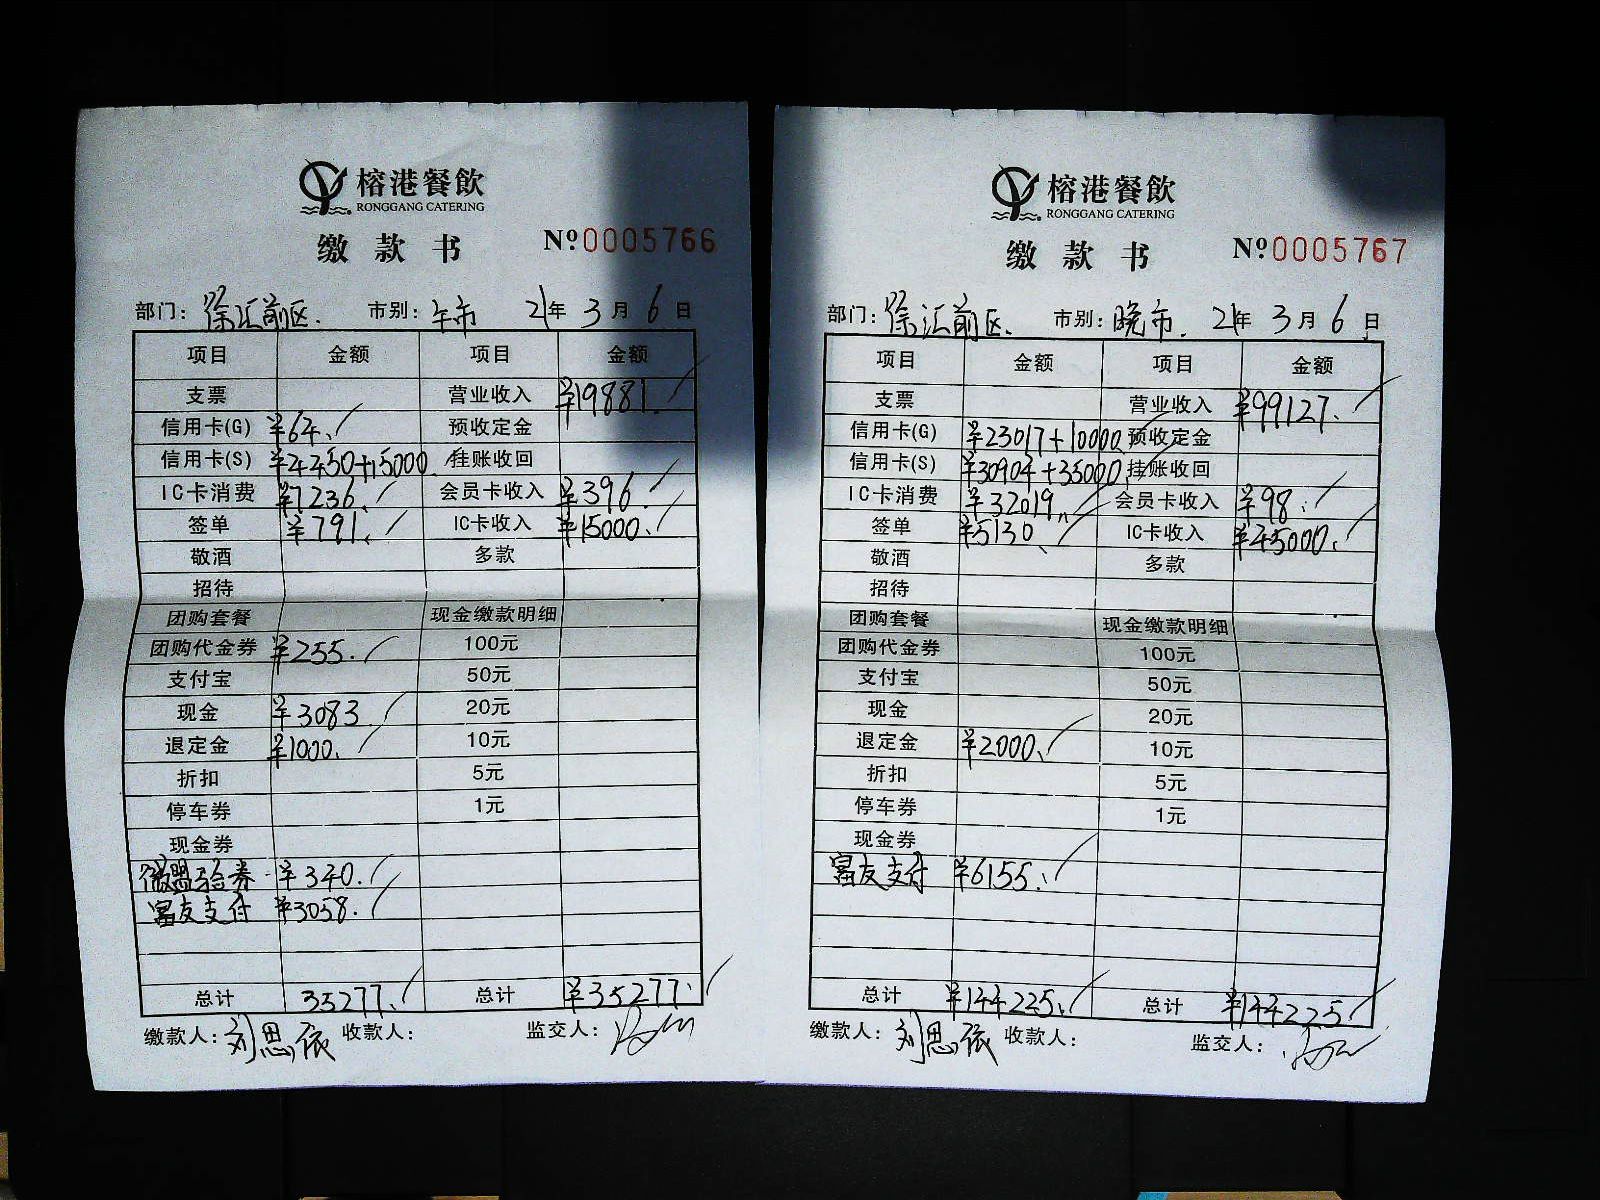 榕港餐飲
RONGGANG CATERING
缴款书 Nº0005766
部门：徐汇前区. 市别：午市 21年3月6日
项目 金额 项目 金额
支票 营业收入 ¥19881.
信用卡(G) ¥64. 预收定金
信用卡(S) ¥4450+15000. 挂账收回
IC卡消费 ¥7236. 会员卡收入 ¥396.
签单 ¥791. IC卡收入 ¥15000.
敬酒 多款
招待
团购套餐 现金缴款明细
团购代金券 ¥255. 100元
支付宝 50元
现金 ¥3083. 20元
退定金 ¥1000. 10元
折扣 5元
停车券 1元
现金券
微盟验券 ¥340.
富友支付 ¥3058.
总计 35277. 总计 ¥35277.
缴款人：刘思依 收款人： 监交人：
榕港餐飲
RONGGANG CATERING
缴款书 Nº0005767
部门：徐汇前区. 市别：晚市. 21年3月6日
项目 金额 项目 金额
支票 营业收入 ¥99127.
信用卡(G) ¥23017+10000. 预收定金
信用卡(S) ¥30904+35000. 挂账收回
IC卡消费 ¥32019. 会员卡收入 ¥98.
签单 ¥5130. IC卡收入 ¥45000.
敬酒 多款
招待
团购套餐 现金缴款明细
团购代金券 100元
支付宝 50元
现金 20元
退定金 ¥2000. 10元
折扣 5元
停车券 1元
现金券
富友支付 ¥6155.
总计 ¥144225. 总计 ¥144225.
缴款人：刘思依 收款人： 监交人：